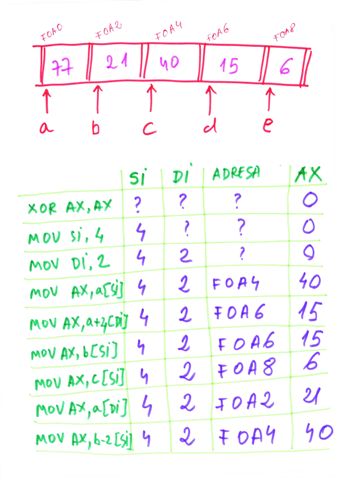 FOA0 FOA2 FOA4 FOA6 FOA8
77 21 40 15 6
a b c d e
Si Di ADRESA AX
XOR AX, AX ? ? ? 0
MOV Si, 4 4 ? ? 0
MOV Di, 2 4 2 ? 0
MOV AX, a[Si] 4 2 FOA4 40
MOV AX, a+4[Di] 4 2 FOA6 15
MOV AX, b[Si] 4 2 FOA6 15
MOV AX, c[Si] 4 2 FOA8 6
MOV AX, a[Di] 4 2 FOA2 21
MOV AX, b-2[Si] 4 2 FOA4 40